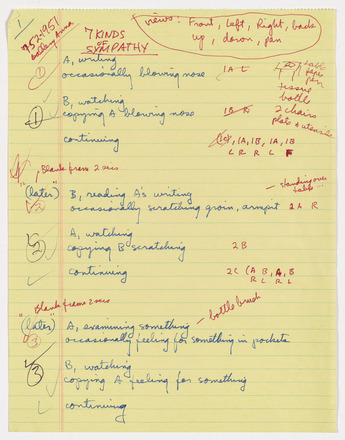 1
752-1951
7 KINDS
OF
SYMPATHY
views: Front, Left, Right, back
up, down, pan
A, writing
① occasionally blowing nose 1A L
table
paper
pen
tissue
bottle
B, watching
① copying A blowing nose 1B R
2 chairs
plate & utensils
continuing 1C, 1A, 1B, 1A, 1B
L R R L F
Blank frame 2 secs
"(later)" B, reading A's writing
standing over
table
2 occasionally scratching groin, armpit 2A R
A, watching
2 copying B scratching 2B
continuing 2C (A B, A, B
R L R L
Blank frame 2 secs
"(later)" A, examining something
bottle brush
3 occasionally feeling for something in pockets
B, watching
3 copying A feeling for something
continuing